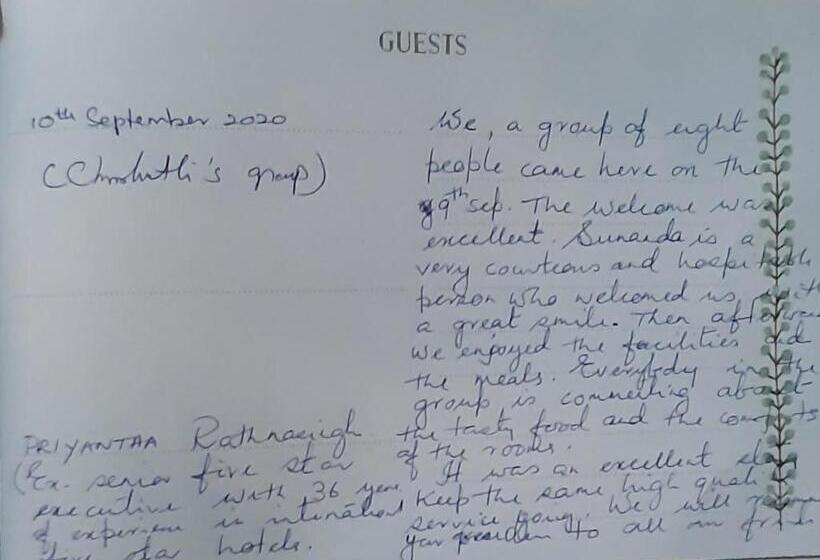 GUESTS
10th September 2020
('s group)
We, a group of eight
people came here on the
9th sep. The welcome was
excellent. Sunanda is a
very courteous and hospitable
person who welcomed us, with
a great smile. Then afterward
we enjoyed the facilities and
the meals. Everybody in the
group is commenting about
the tasty food and the comforts
of the rooms.
It was an excellent
Keep the same high
service going. We will
to all
PRIYANTHA
(Ex. senior five star
executive with 36 years
of experience in international
five star hotels.